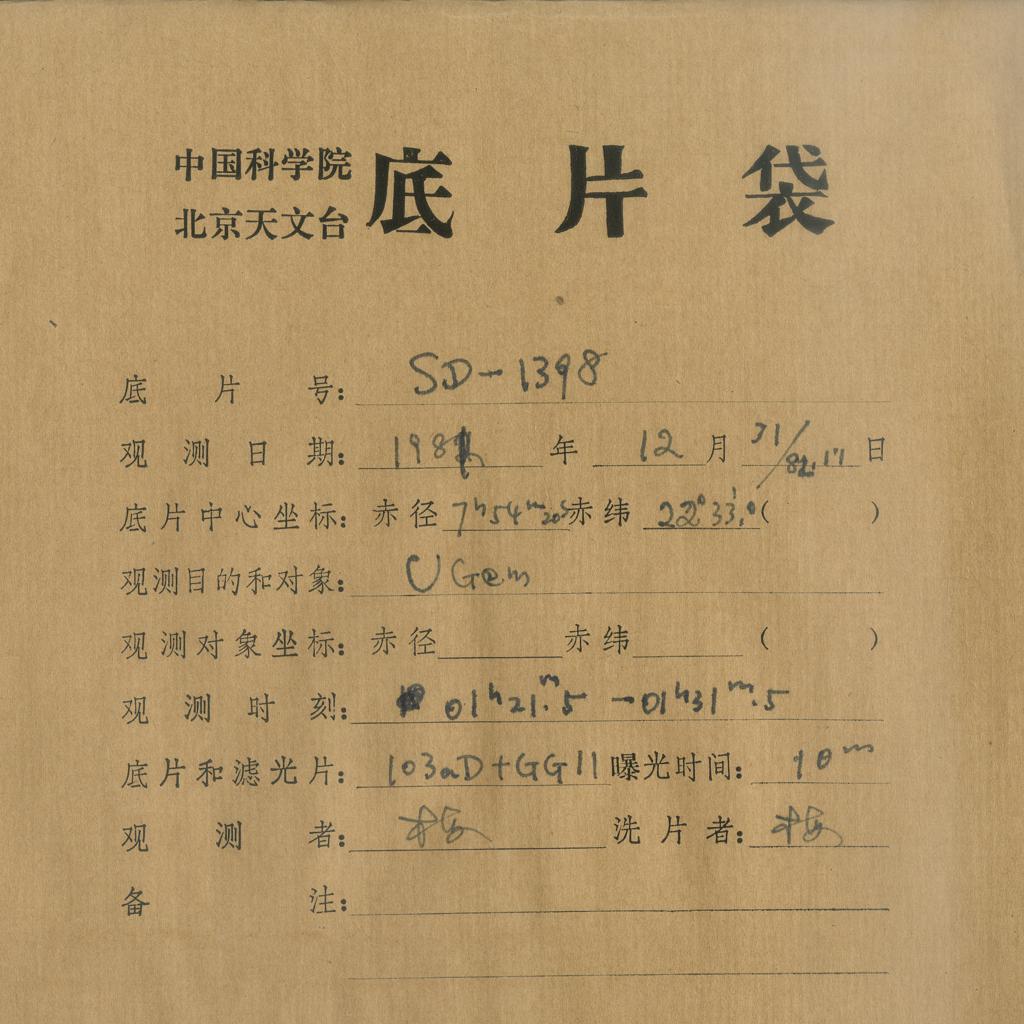 中国科学院
北京天文台
底片袋
底片号: SD-1398
观测日期: 198 年 12 月 31/ 日
底片中心坐标: 赤径 7h54m20s 赤纬 22°33'.0 ( )
观测目的和对象: U Gem
观测对象坐标: 赤径 赤纬 ( )
观测时刻: 01h21m.5 - 01h31m.5
底片和滤光片: 103aD+GG11 曝光时间: 10m
观测者: 梅 洗片者: 梅
备注: